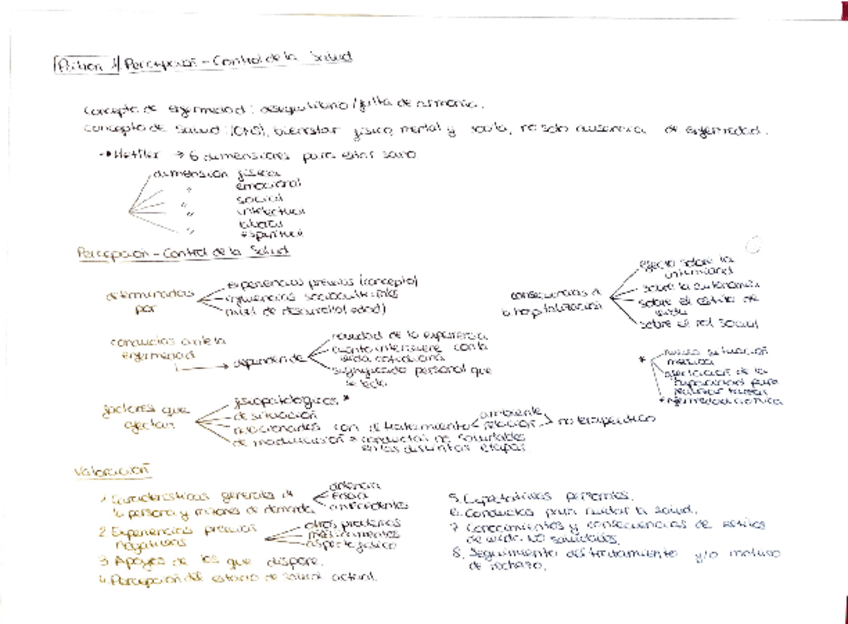 Patrón 1/ Percepción - Control de la Salud
Concepto de enfermedad: desequilibrio/falta de armonía.
Concepto de salud: (OMS), bienestar físico, mental y social, no solo ausencia de enfermedad.
→ Hettler → 6 dimensiones para estar sano
dimensión física
" emocional
" social
" intelectual
" laboral
" espiritual
Percepción - Control de la Salud
determinadas por
experiencias previas (concepto)
influencias socioculturales
nivel de desarrollo (edad)
consecuencias d
hospitalización
efecto sobre la intimidad
sobre la autonomía
sobre el estilo de vida
sobre el rol social
conductas ante la enfermedad
→ dependen de
novedad de la experiencia
cuanto interviene con la vida cotidiana
significado personal que
le
factores que afectan
fisiopatológicos *
de situación
relacionados con el tratamiento
ambiente
relación
no terapéutico
de maduración * conductas no saludables
en las distintas etapas
*
nueva situación médica
de las
capacidades para
realizar tareas
enfermedad crónica
Valoración
1. Características generales d
la persona y motivos de demanda
antecedentes
2. Experiencias previas negativas
otros problemas
medicamentos
aspecto físico
3. Apoyos de los que dispone.
4. Percepción del estado de salud actual.
5. Expectativas personales.
6. Conductas para cuidar la salud.
7. Conocimientos y consecuencias de estilos
de vida NO saludables.
8. Seguimiento del tratamiento y/o motivo
de rechazo.